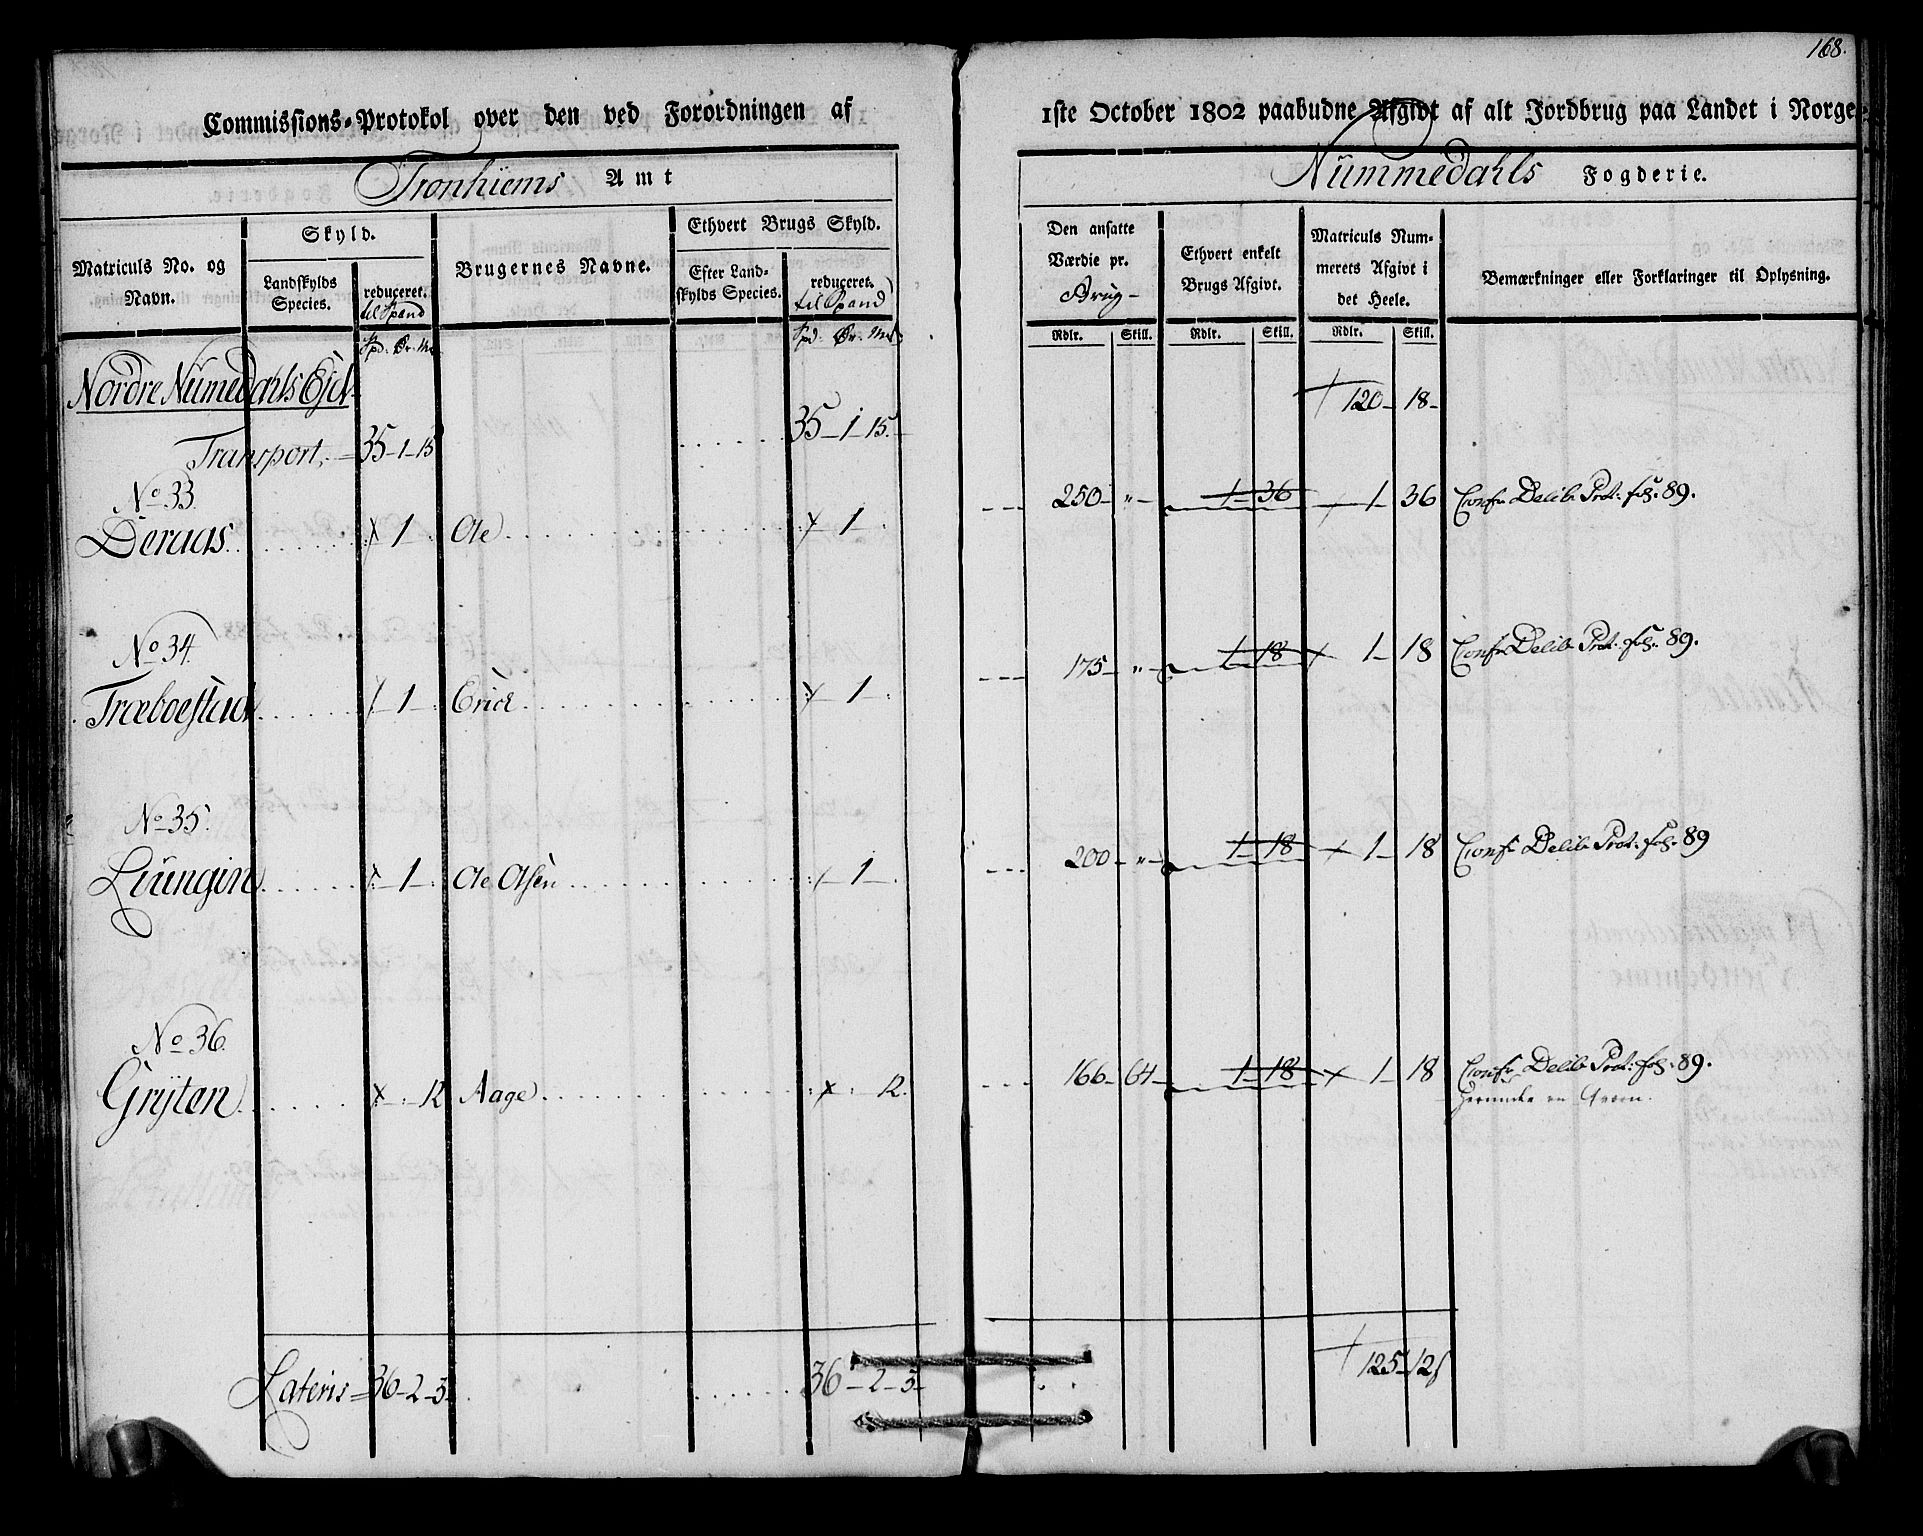 168.
Commissions-Protokol over den ved Forordningen af 1ste October 1802 paabudne Afgivt af alt Jordbrug paa Landet i Norge
Tronhiems Amt
Nummedahls Fogderie.
Matriculs No. og Navn.
Skyld.
Landskylds Species.
reduceret.
til Spand
Brugernes Navne.
Ethvert Brugs Skyld.
Efter Landskylds Species.
reduceret.
til Spand
Den ansatte Værdie pr.
Brug
Ethvert enkelt Brugs Afgivt.
Matriculs Nummerets Afgivt i det Heele.
Bemærkninger eller Forklaringer til Oplysning.
Rdlr. Skill. Rdlr. Skill. Rdlr. Skill.
Spd: Ør. Spd: Ør.
Nordre Numedahls
120 - 18 -
Transport, 35 - 1 - 15 35 - 1 - 15.
No 33.
Deraas 1 Ole 1 250 - " - 1 - 36 1 - 36 Confr Delib Prot: fol: 89.
No 34.
Træboestad 1 Erich 1 175 - " - 1 - 18 1 - 18 Confr Delib Prot: fol: 89.
No 35.
Liungin 1 Ole Olsen 1 200 - " - 1 - 18 1 - 18 Confr Delib Prot: fol: 89
No 36.
Grÿten 12 Aage 12. 166 - 64 - 1 - 18 1 - 18 Confr Delib Prot: fol: 89.
en Qværn.
Lateris 36 - 2 - 3 36 - 2 - 3 125 - 12